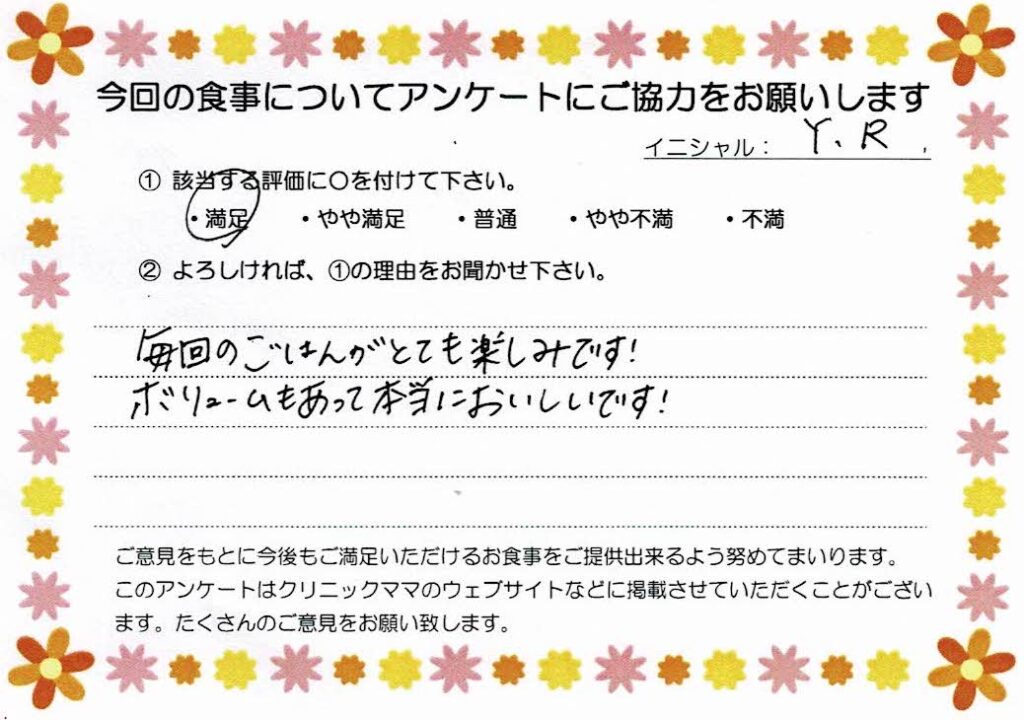 今回の食事についてアンケートにご協力をお願いします
イニシャル： Y. R
① 該当する評価に〇を付けて下さい。
・満足 ・やや満足 ・普通 ・やや不満 ・不満
② よろしければ、①の理由をお聞かせ下さい。
毎回のごはんがとても楽しみです!
ボリュームもあって本当においしいです!
ご意見をもとに今後もご満足いただけるお食事をご提供出来るよう努めてまいります。
このアンケートはクリニックママのウェブサイトなどに掲載させていただくことがござい
ます。たくさんのご意見をお願い致します。